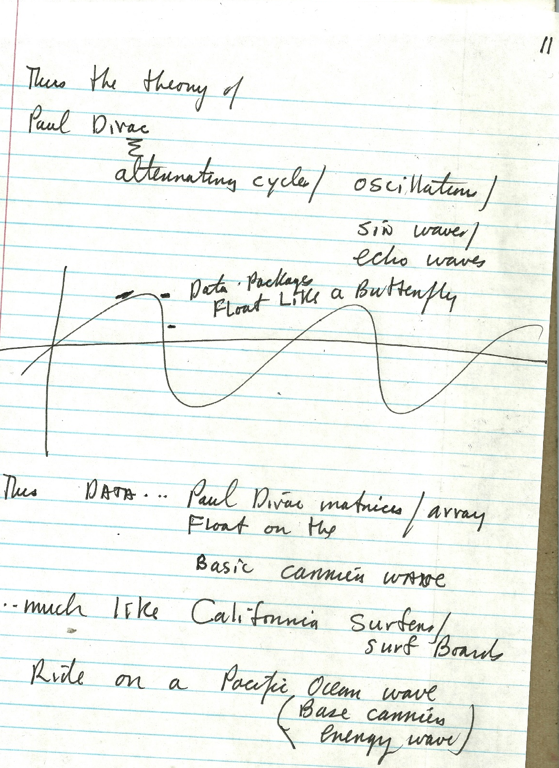 11
Thus the theory of
Paul Dirac
alternating cycles/ oscillations/
sin waves/
echo waves
Data Packages
Float Like a Butterfly
Thus DATA... Paul Dirac matrices/array
Float on the
Basic carrier wave
..much like California Surfers/
surf Boards
Ride on a Pacific Ocean wave
(Base carrier
energy wave)